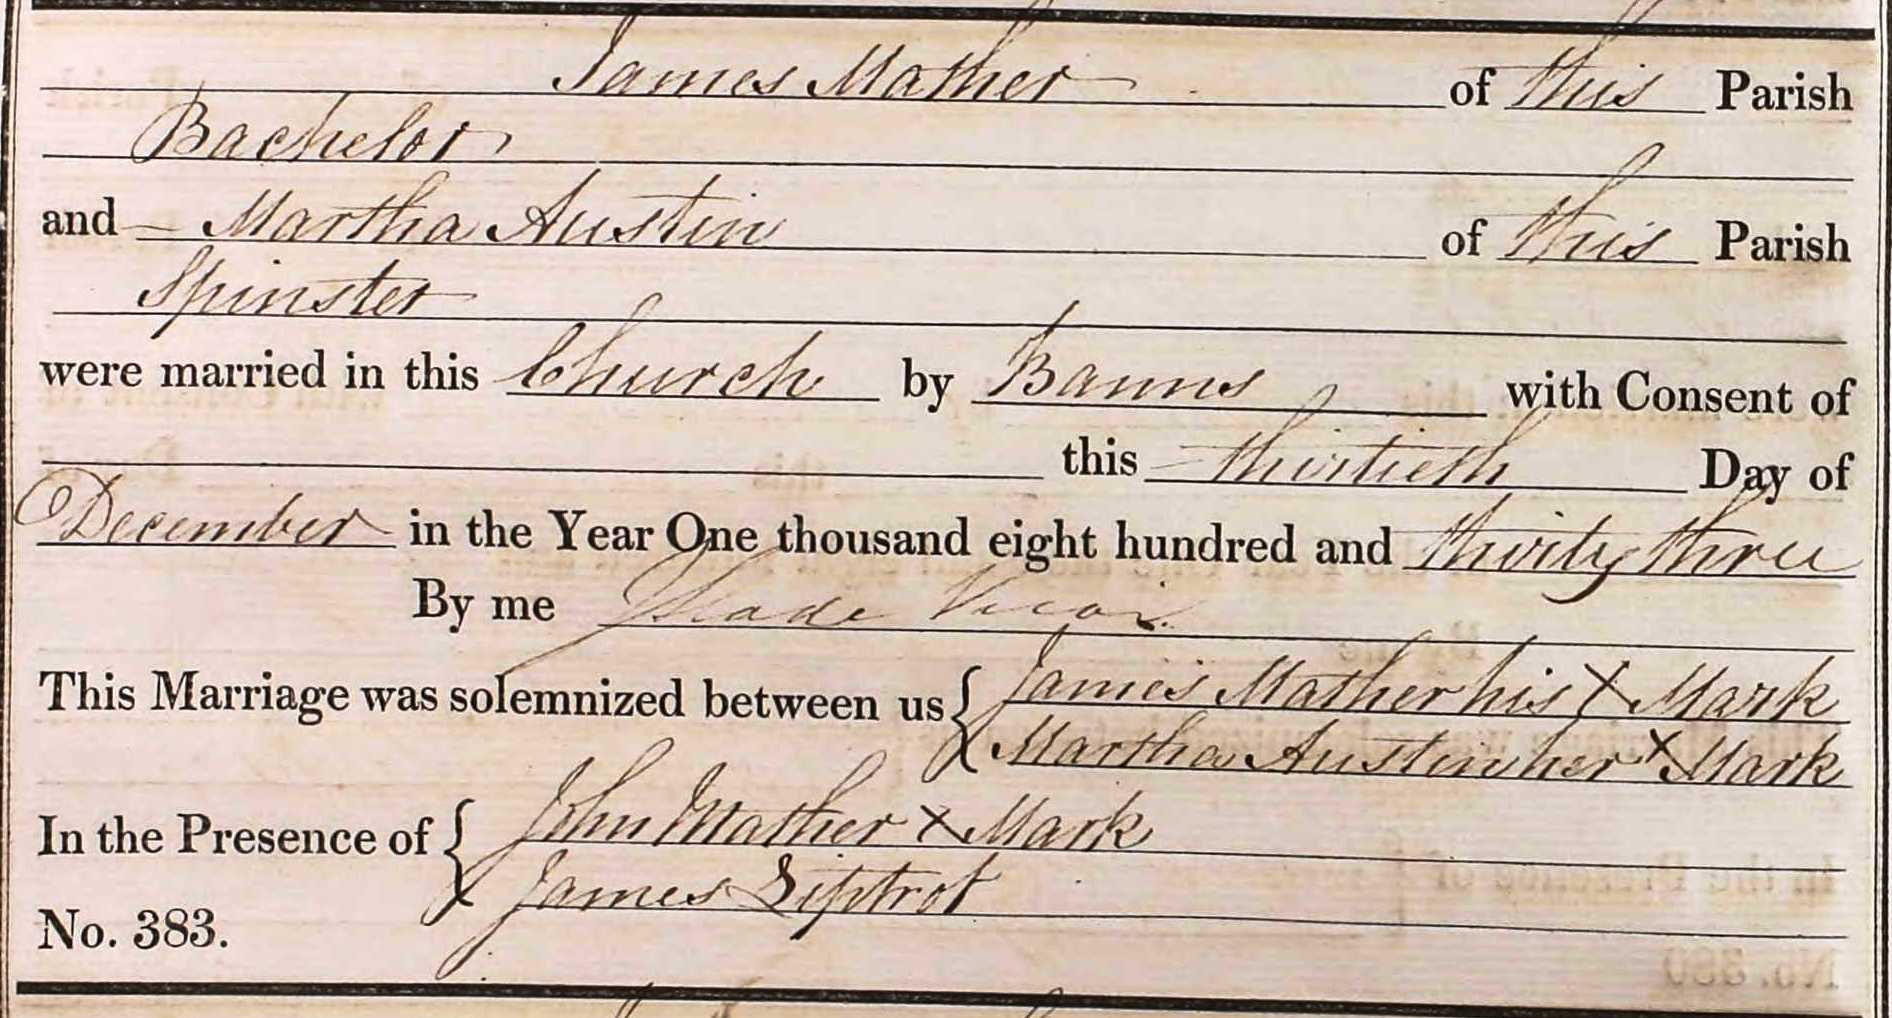 James Mather of this Parish
Bachelor
and Martha Austin of this Parish
Spinster
were married in this Church by Banns with Consent of
this thirtieth Day of
December in the Year One thousand eight hundred and thirty three
By me J Slade Vicar
This Marriage was solemnized between us { James Mather his X Mark
Martha Austin her X Mark
In the Presence of { John Mather X Mark
James Liptrot
No. 383.